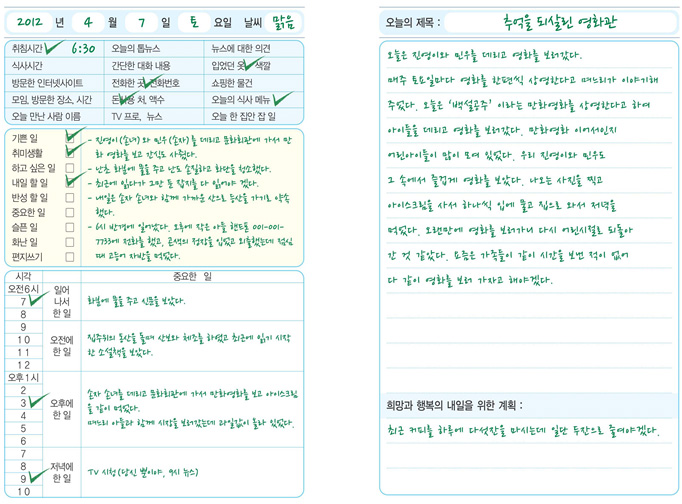 2012 년 4 월 7 일 토 요일 날씨 맑음
취침시간 6:30 오늘의 톱뉴스 뉴스에 대한 의견
식사시간 간단한 대화 내용 입었던 옷 색깔
방문한 인터넷사이트 전화한 곳, 전화번호 쇼핑한 물건
모임, 방문한 장소, 시간 돈 사용 처, 액수 오늘의 식사 메뉴
오늘 만난 사람 이름 TV 프로, 뉴스 오늘 한 집안 잡 일
기쁜 일
취미생활
하고 싶은 일
내일 할 일
반성 할 일
중요한 일
슬픈 일
화난 일
편지쓰기
- 진영이(손녀)와 민우(손자)를 데리고 문화회관에 가서 만
화 영화를 보고 간식도 사줬다.
- 난초 화분에 물을 주고 난도 손질하고 화단을 청소했다.
- 최근에 읽다가 그만 둔 잡지를 다 읽어야 겠다.
- 내일은 손자 손녀와 함께 가까운 산으로 등산을 가기로 약속
했다.
- 6시 반경에 일어났다. 오후에 작은 아들 핸드폰 001-001-
7733에 전화를 했고, 곤색의 정장을 입었고 외출했는데 점심
때 고등어 자반을 먹었다.
시각 중요한 일
오전6시
7
8
일어
나서
한 일
화분에 물을 주고 신문을 보았다.
9
10
11
12
오전에
한 일
집주위의 동산을 돌며 산보와 체조를 하였고 최근에 읽기 시작
한 소설책을 보았다.
오후1시
2
3
4
5
6
오후에
한 일
손자 손녀를 데리고 문화회관에 가서 만화영화를 보고 아이스크림
을 같이 먹었다.
며느리 아들과 함께 시장을 보러갔는데 과일값이 올라 있었다.
7
8
9
10
저녁에
한 일
TV 시청(당신 뿐이야, 9시 뉴스)
오늘의 제목 : 추억을 되살린 영화관
오늘은 진영이와 민우를 데리고 영화를 보러갔다.
매주 토요일마다 영화를 한편씩 상영한다고 며느리가 이야기해
주었다. 오늘은 '백설공주' 이라는 만화영화를 상영한다고 하여
아이들을 데리고 영화를 보러갔다. 만화영화 이어서인지
어린아이들이 많이 모여 있었다. 우리 진영이와 민우도
그 속에서 즐겁게 영화를 보았다. 나오는 사진을 찍고
아이스크림을 사서 하나씩 입에 물고 집으로 와서 저녁을
먹었다. 오랜만에 영화를 보러가니 다시 어린시절로 되돌아
간 것 같았다. 요즘은 가족들이 같이 시간을 보낸 적이 없어
다 같이 영화를 보러 가자고 해야겠다.
희망과 행복의 내일을 위한 계획 :
최근 커피를 하루에 다섯잔을 마시는데 일단 두잔으로 줄여야겠다.